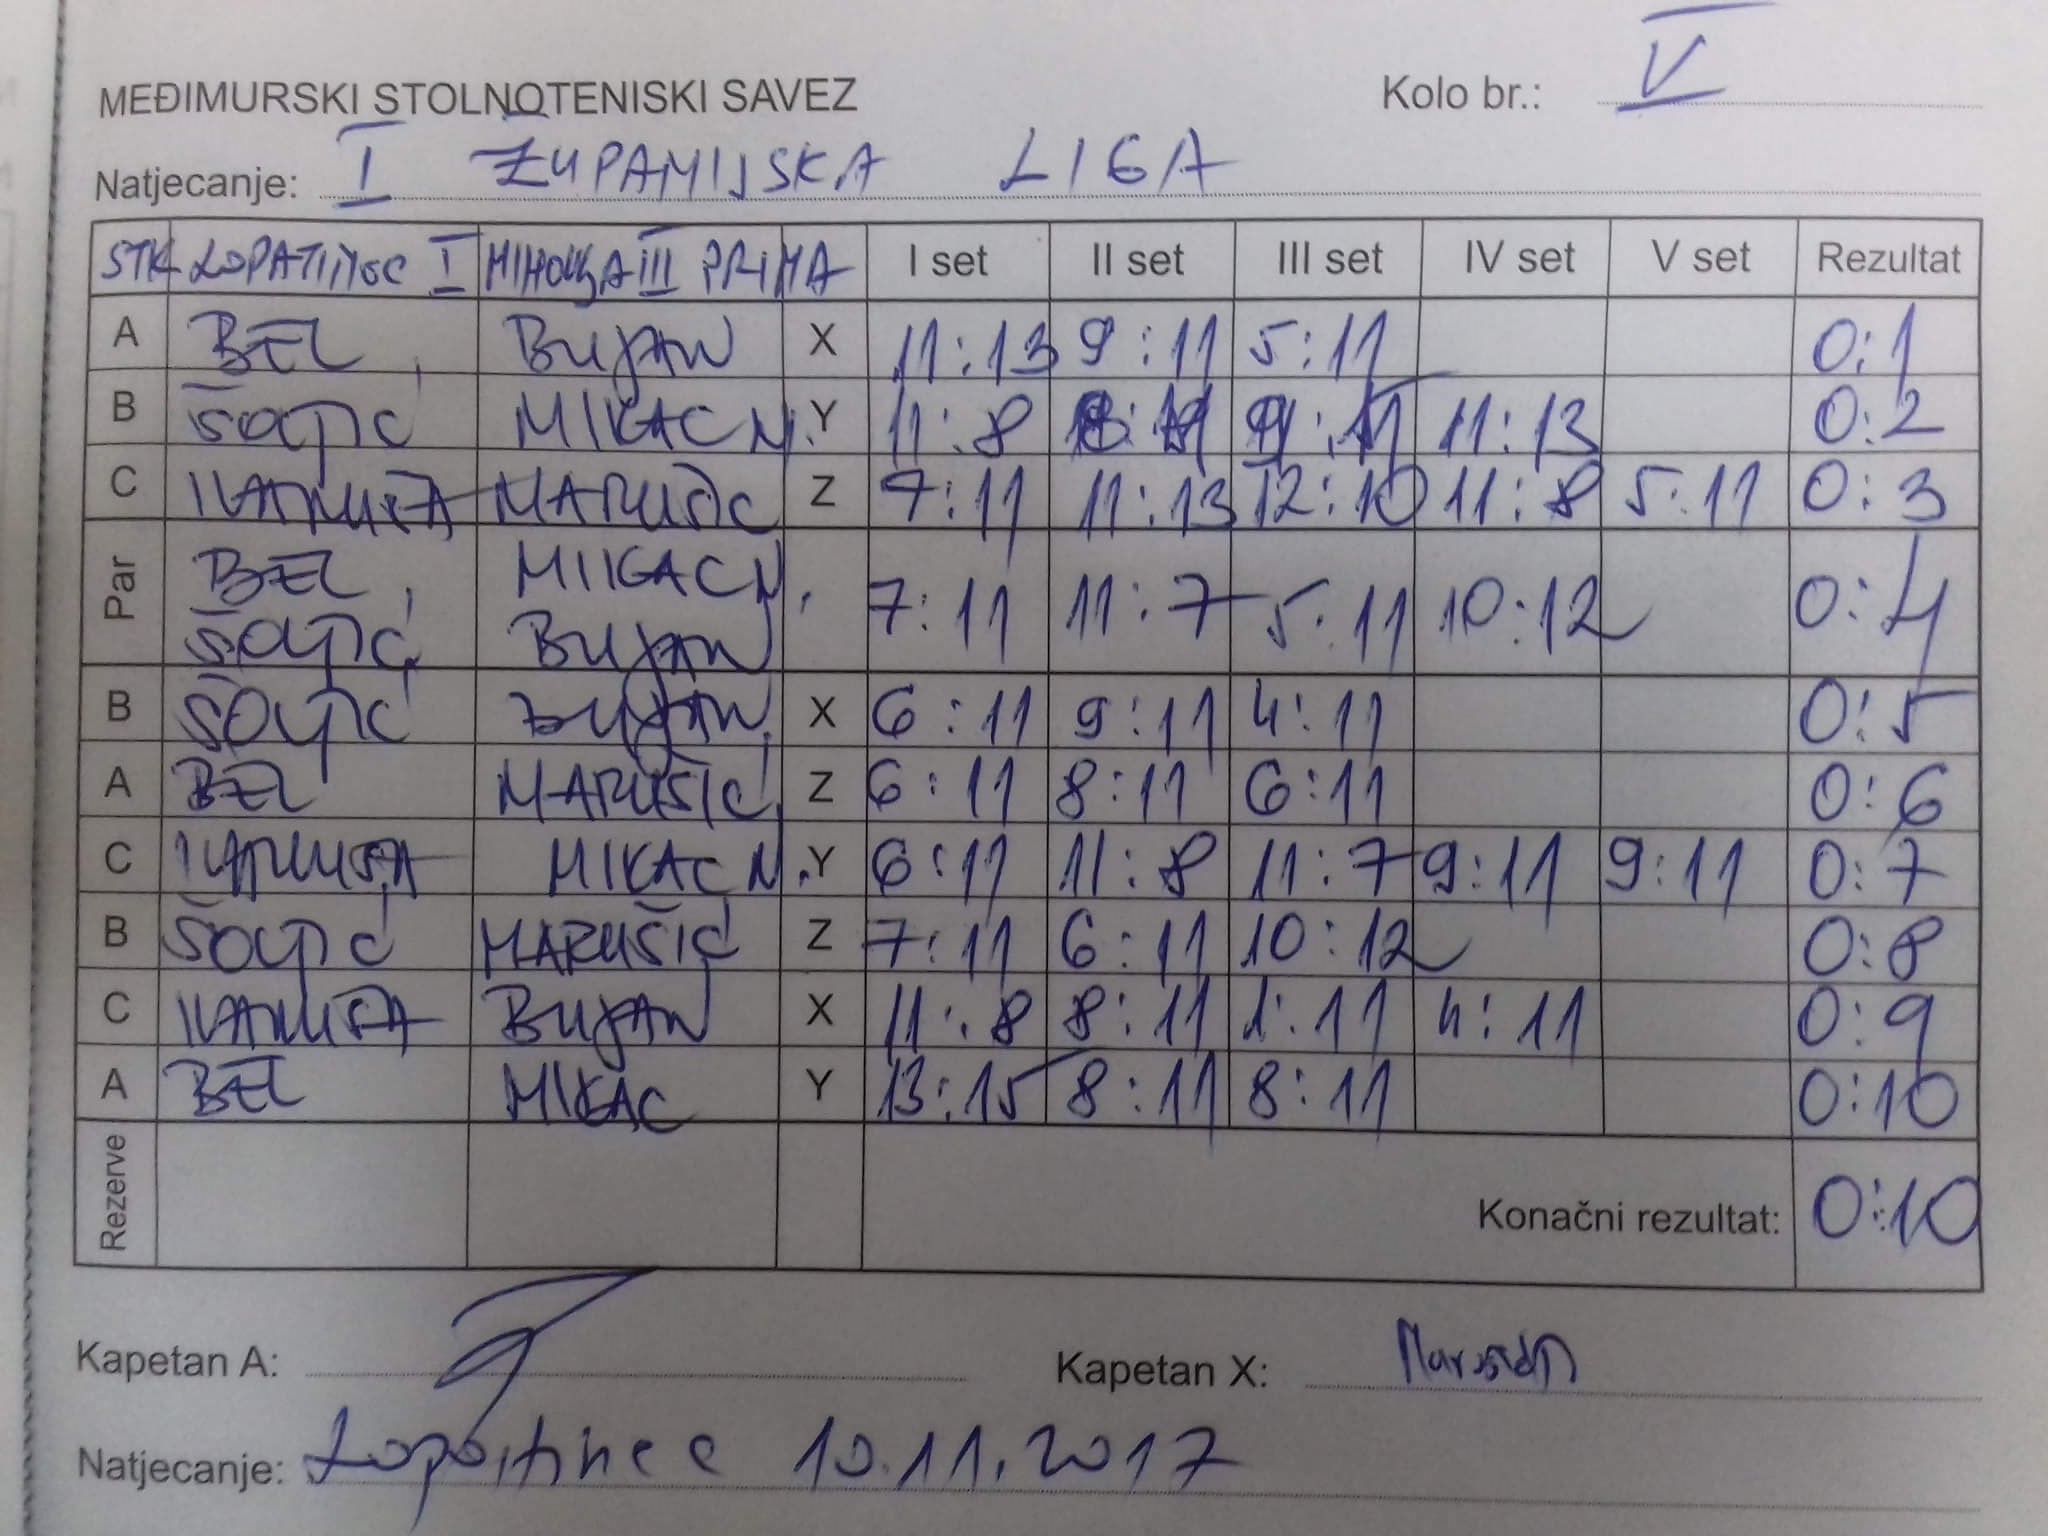 MEĐIMURSKI STOLNOTENISKI SAVEZ Kolo br.: V
Natjecanje: I ŽUPANIJSKA LIGA
STK LOPATINEC I III PRIMA I set II set III set IV set V set Rezultat
A BEL BUJAN X 11:13 9:11 5:11 0:1
B ŠOLTIĆ MIKAC N. Y 11:8 11:13 0:2
C MARUŠIĆ Z 7:11 11:13 12:10 11:8 5:11 0:3
Par BEL, MIKAC N, 7:11 11:7 5:11 10:12 0:4
ŠOLTIĆ BUJAN
B ŠOLTIĆ BUJAN X 6:11 9:11 4:11 0:5
A BEL MARUŠIĆ Z 6:11 8:11 6:11 0:6
C MIKAC N. Y 6:11 11:8 11:7 9:11 9:11 0:7
B ŠOLTIĆ MARUŠIĆ Z 7:11 6:11 10:12 0:8
C BUJAN X 11:8 8:11 1:11 4:11 0:9
A BEL MIKAC Y 13:15 8:11 8:11 0:10
Rezerve Konačni rezultat: 0:10
Kapetan A: Kapetan X:
Natjecanje: Lopatinec 10.11.2017